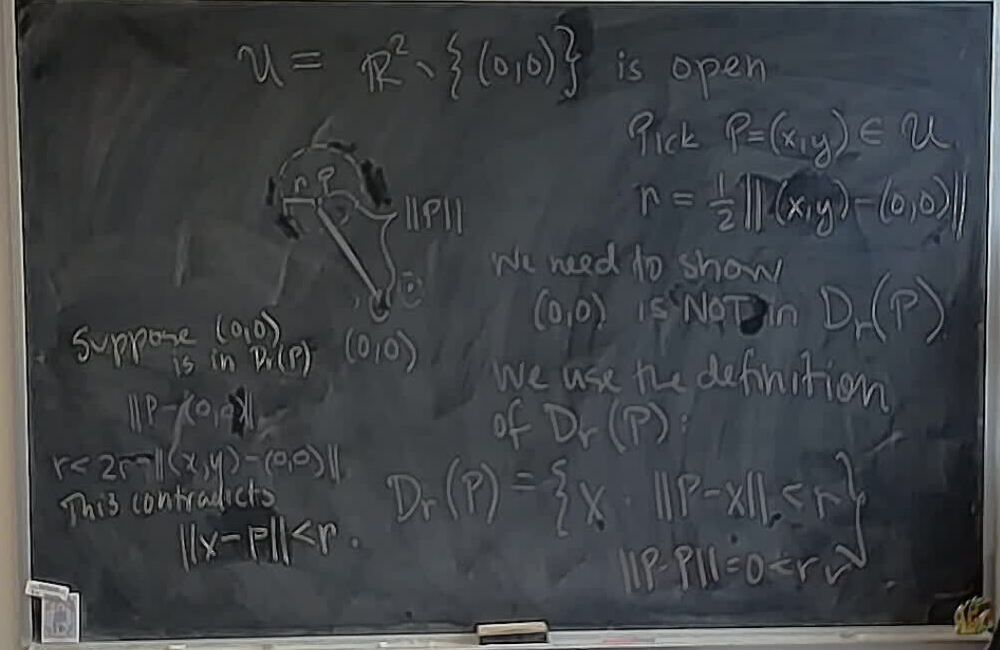 U = ℝ² \ {(0,0)} is open
Pick P=(x,y) ∈ U
r = 1/2 ||(x,y)-(0,0)||
We need to show
(0,0) is NOT in Dr(P)
We use the definition
of Dr(P):
Dr(P) = {x : ||P-x|| < r}
||P-P|| = 0 < r ✓
r P
||P||
(0,0)
Suppose (0,0)
is in Dr(P)
||P-(0,0)||
r < 2r = ||(x,y)-(0,0)||
This contradicts
||x-P|| < r.